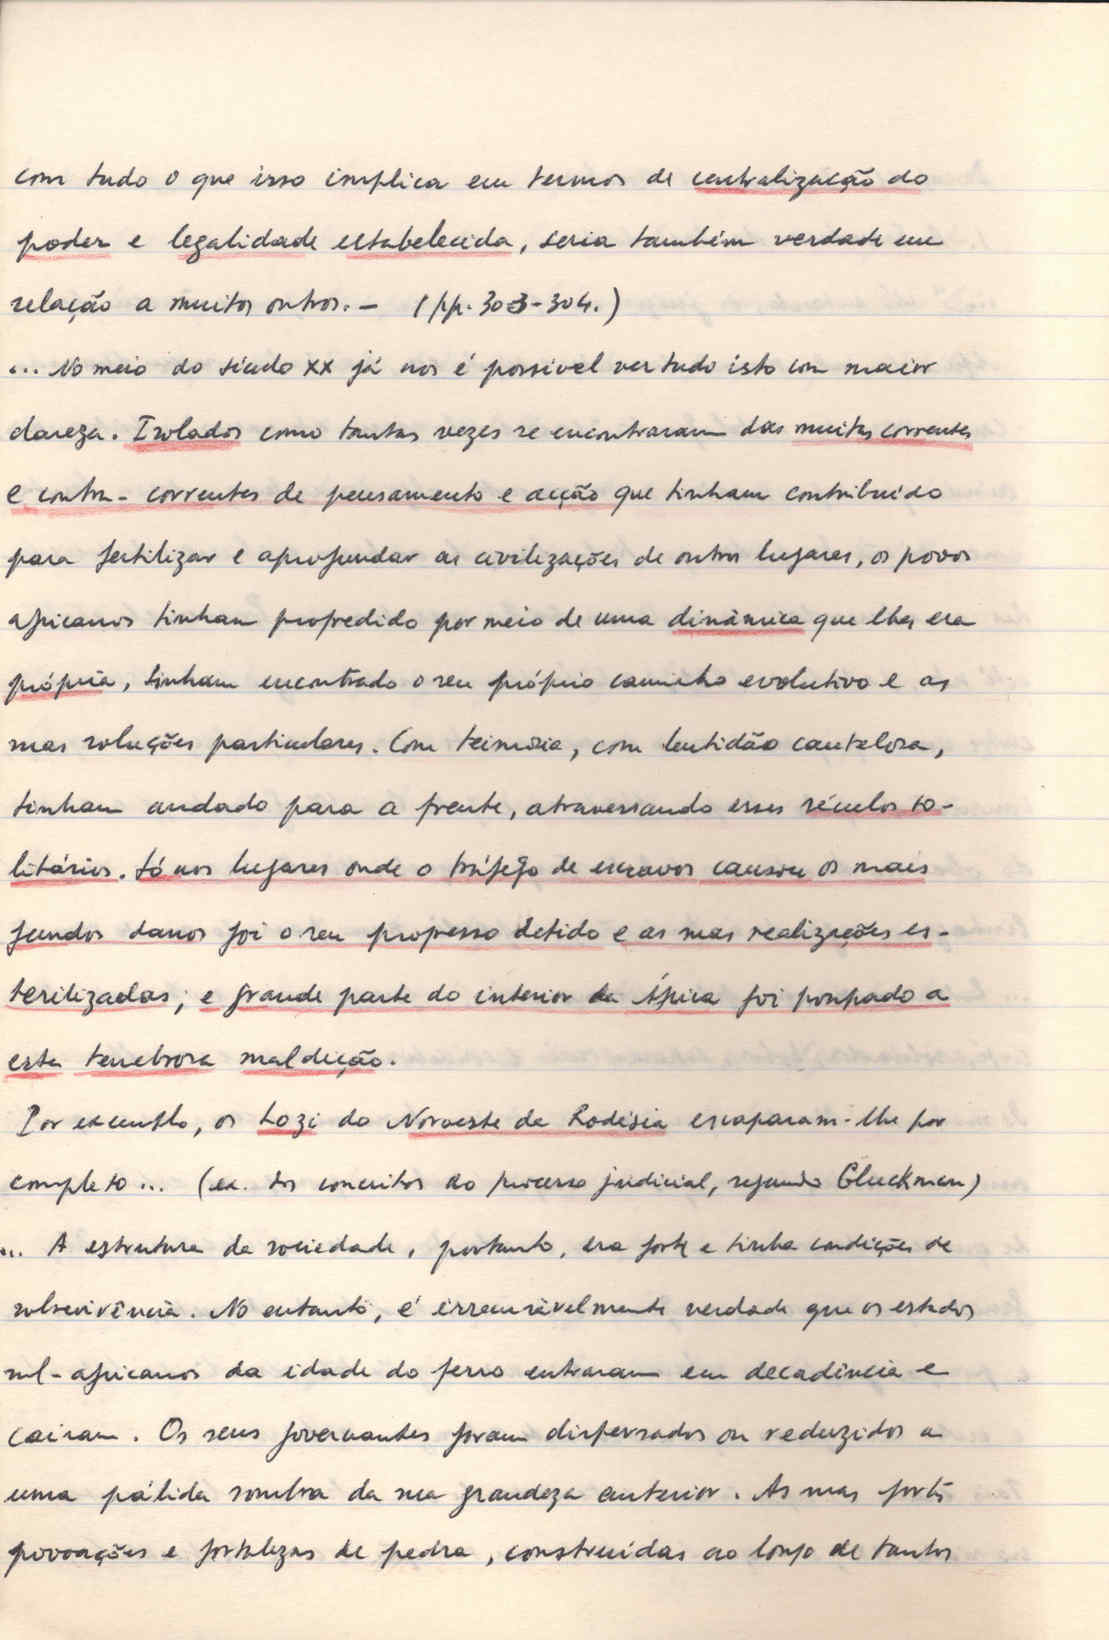 com tudo o que isso implica em termos de centralização do
poder e legalidade estabelecida, seria também verdade em
relação a muitos outros. – (pp. 303-304.)
... No meio do século XX já nos é possível ver tudo isto com maior
clareza. Isolados como tantas vezes se encontraram das muitas correntes
e contra-correntes de pensamento e acção que tinham contribuído
para fertilizar e aprofundar as civilizações de outros lugares, os povos
africanos tinham progredido por meio de uma dinâmica que lhes era
própria, tinham encontrado o seu próprio caminho evolutivo e as
suas soluções particulares. Com teimosia, com lentidão cautelosa,
tinham andado para a frente, atravessando esses séculos so-
litários. Só nos lugares onde o tráfego de escravos causou os mais
fundos danos foi o seu progresso detido e as suas realizações es-
terilizadas; e grande parte do interior da África foi poupado a
esta tenebrosa maldição.
Por exemplo, os Lozi do Noroeste da Rodésia escaparam-lhe por
completo... (ex. dos conceitos do processo judicial, segundo Gluckman)
... A estrutura da sociedade, portanto, era forte e tinha condições de
sobrevivência. No entanto, é irrecusàvelmente verdade que os estados
sul-africanos da idade do ferro entraram em decadência e
caíram. Os seus governantes foram dispersados ou reduzidos a
uma pálida sombra da sua grandeza anterior. As suas fortes
povoações e fortalezas de pedra, construídas ao longo de tantos